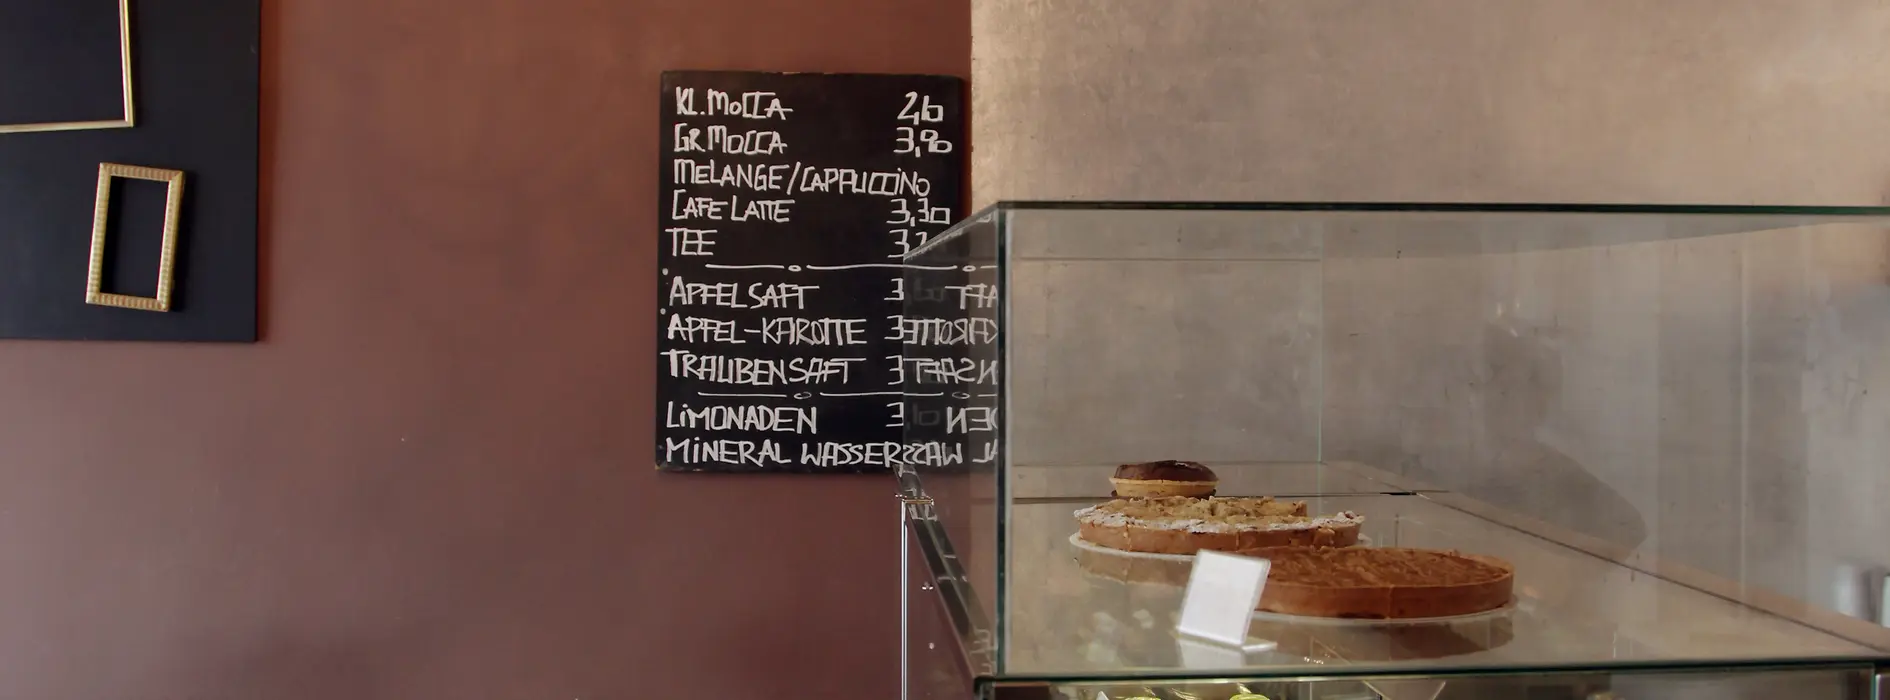 KL. MOCCA 2,60
GR MOCCA 3,90
MELANGE/CAPPUCCINO
CAFE LATTE 3,30
TEE
APFELSAFT 3
APFEL-KAROTTE 3
TRAUBENSAFT 3
LIMONADEN 3
MINERAL WASSER